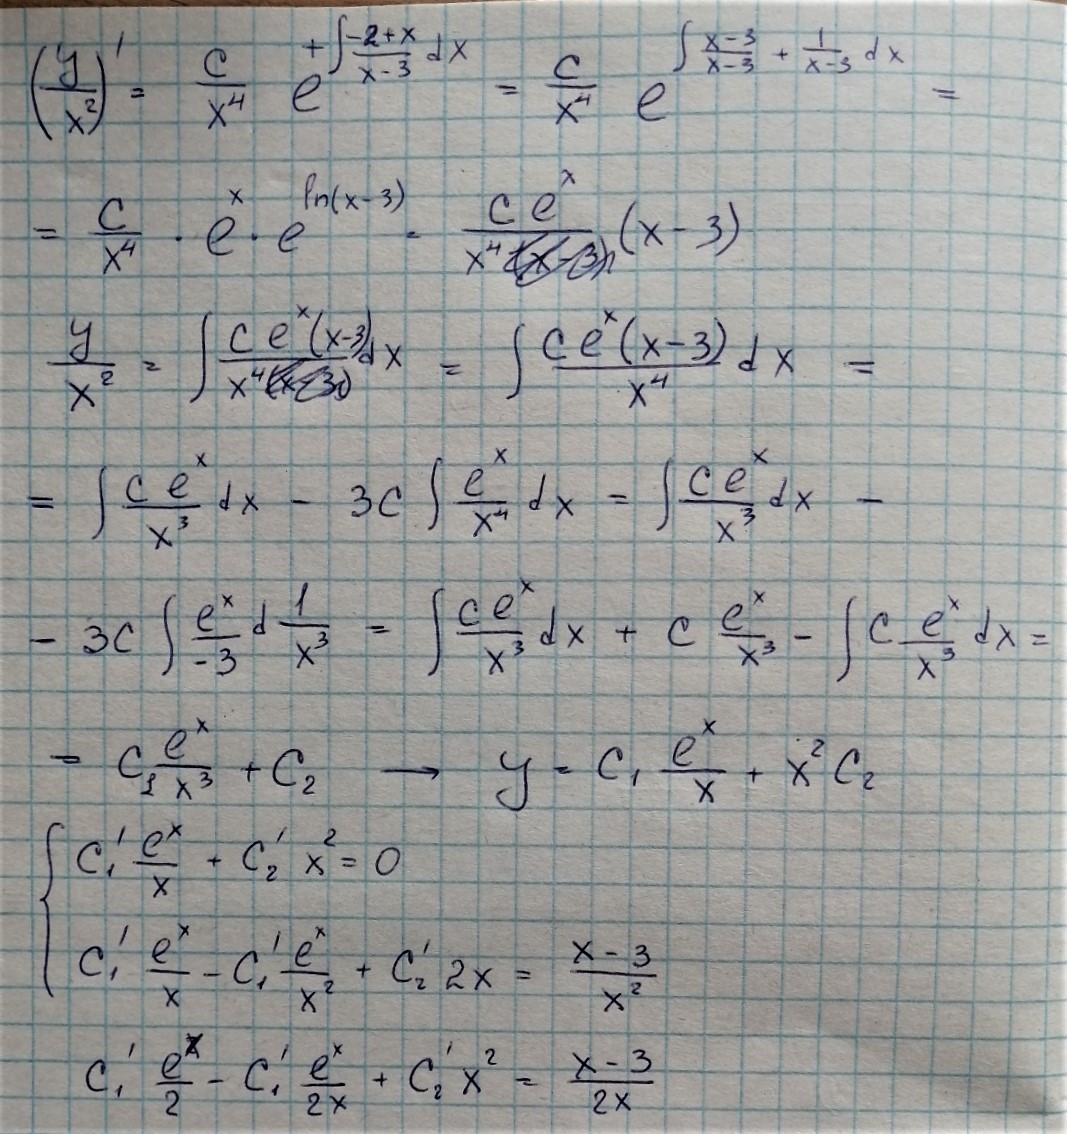 (y/x²)' = C/x⁴ e^(+∫(-2+x)/(x-3) dx) = C/x⁴ e^(∫(x-3)/(x-3) + 1/(x-3) dx) =
= C/x⁴ · e^x · e^(ln(x-3)) = Ce^x/x⁴ (x-3)
y/x² = ∫ Ce^x(x-3)/x⁴ dx = ∫ Ce^x(x-3)/x⁴ dx =
= ∫ Ce^x/x³ dx - 3C ∫ e^x/x⁴ dx = ∫ Ce^x/x³ dx -
- 3C ∫ e^x/-3 d 1/x³ = ∫ Ce^x/x³ dx + C e^x/x³ - ∫ C e^x/x³ dx =
= C₁ e^x/x³ + C₂ → y = C₁ e^x/x + x² C₂
{ C₁' e^x/x + C₂' x² = 0
C₁' e^x/x - C₁' e^x/x² + C₂' 2x = (x-3)/x²
C₁' e^x/2 - C₁' e^x/2x + C₂' x² = (x-3)/2x